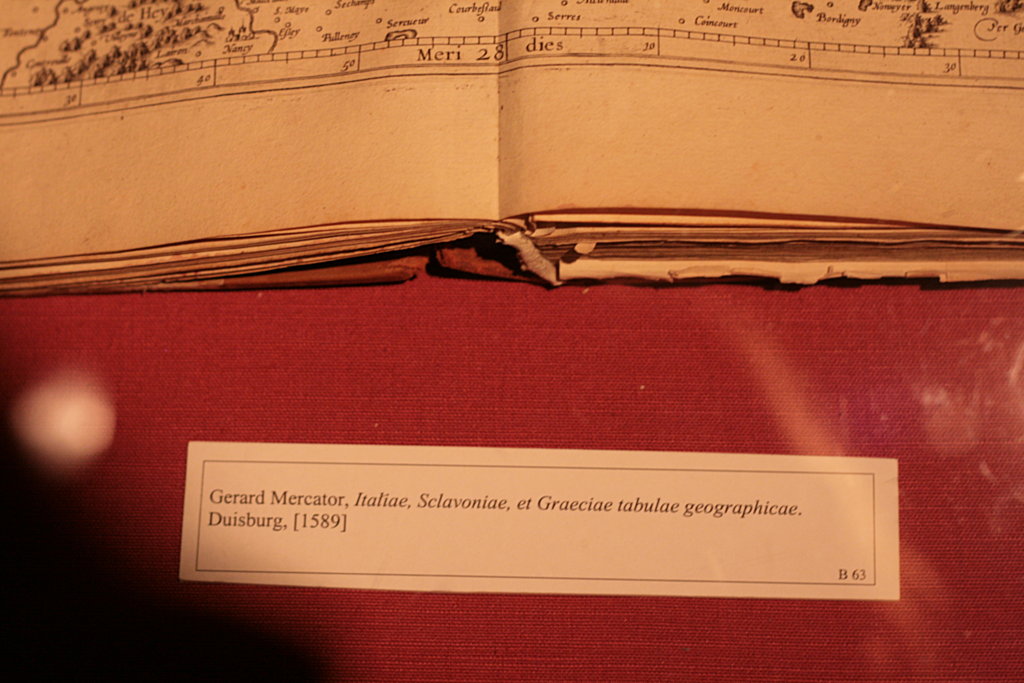 de Hey
S. Maye
Sechamps
Courbessaul
Serres
Moncourt
Bordigny
Langenberg
Cercueur
Coincourt
Essey
Pullenoy
Nancy
Meri 28 dies
30 40 50 10 20 30
Gerard Mercator, Italiae, Sclavoniae, et Graeciae tabulae geographicae.
Duisburg, [1589]
B 63